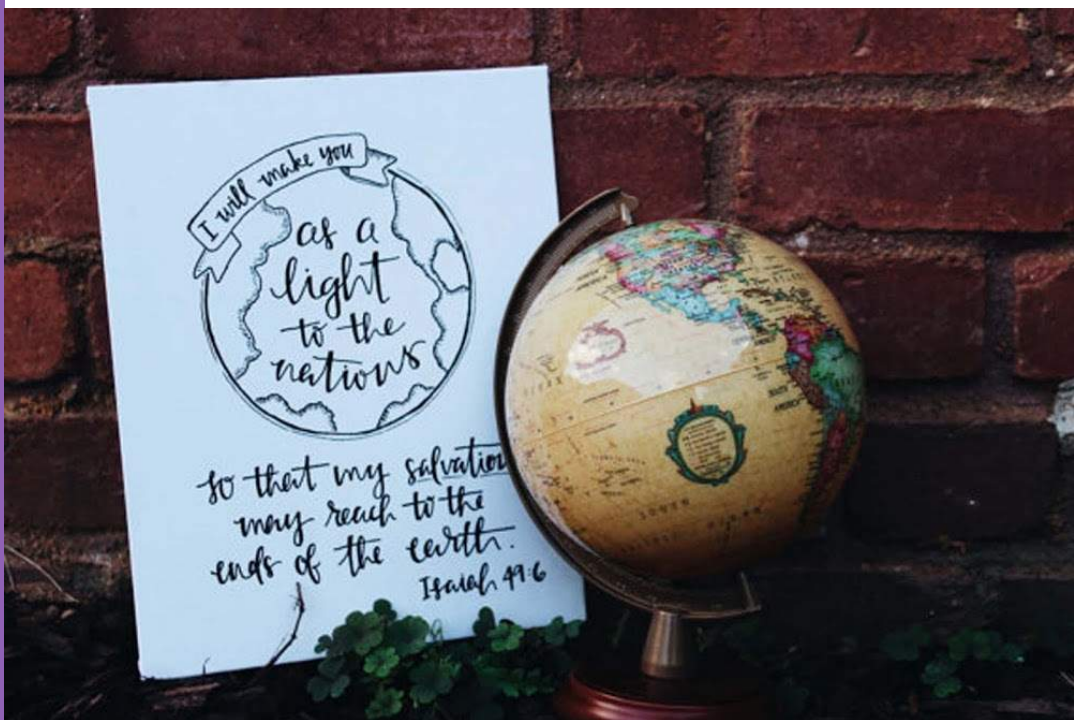 I will make you
as a
light
to the
nations
so that my salvation
may reach to the
ends of the earth.
Isaiah 49:6
SOUTH
AMERICA
SOUTH